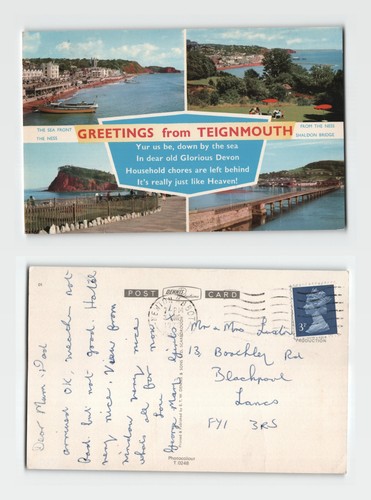 THE SEA FRONT
THE NESS
FROM THE NESS
SHALDON BRIDGE
GREETINGS from TEIGNMOUTH
Yur us be, down by the sea
In dear old Glorious Devon
Household chores are left behind
It's really just like Heaven!
POST DENNIS CARD
Dear Mum & Dad
arrived OK, weather not
bad, but not good. Hotel
very nice. View from
window very nice
thats all for now.
Love
George Mary & girls
Mr & Mrs
13, Rd
Blackpool
Lancs
FY1 3RS
3P
Photocolour
T 0246